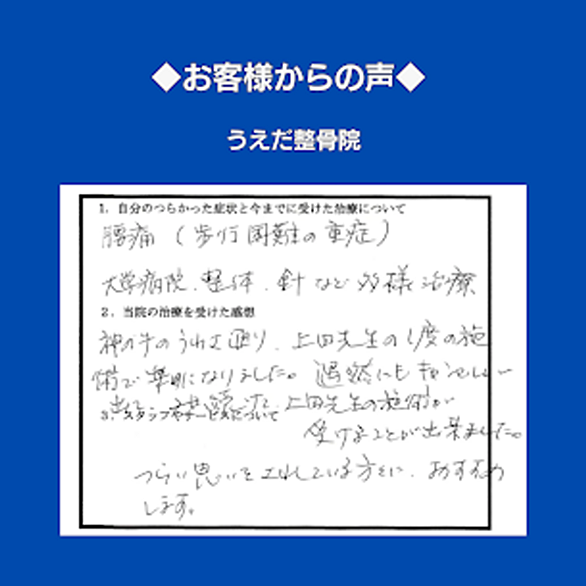 ◆お客様からの声◆
うえだ整骨院
1．自分のつらかった症状と今までに受けた治療について
腰痛（歩行困難の重症）
大学病院．整体．針など多様治療
2．当院の治療を受けた感想
神の手のうわさ通り、上田先生の1度の施
術で楽になりました。偶然にも
3．スタッフやサービスについて
上田先生の施術が
受けることが出来ました。
つらい思いをしている方々に、おすすめ
します。